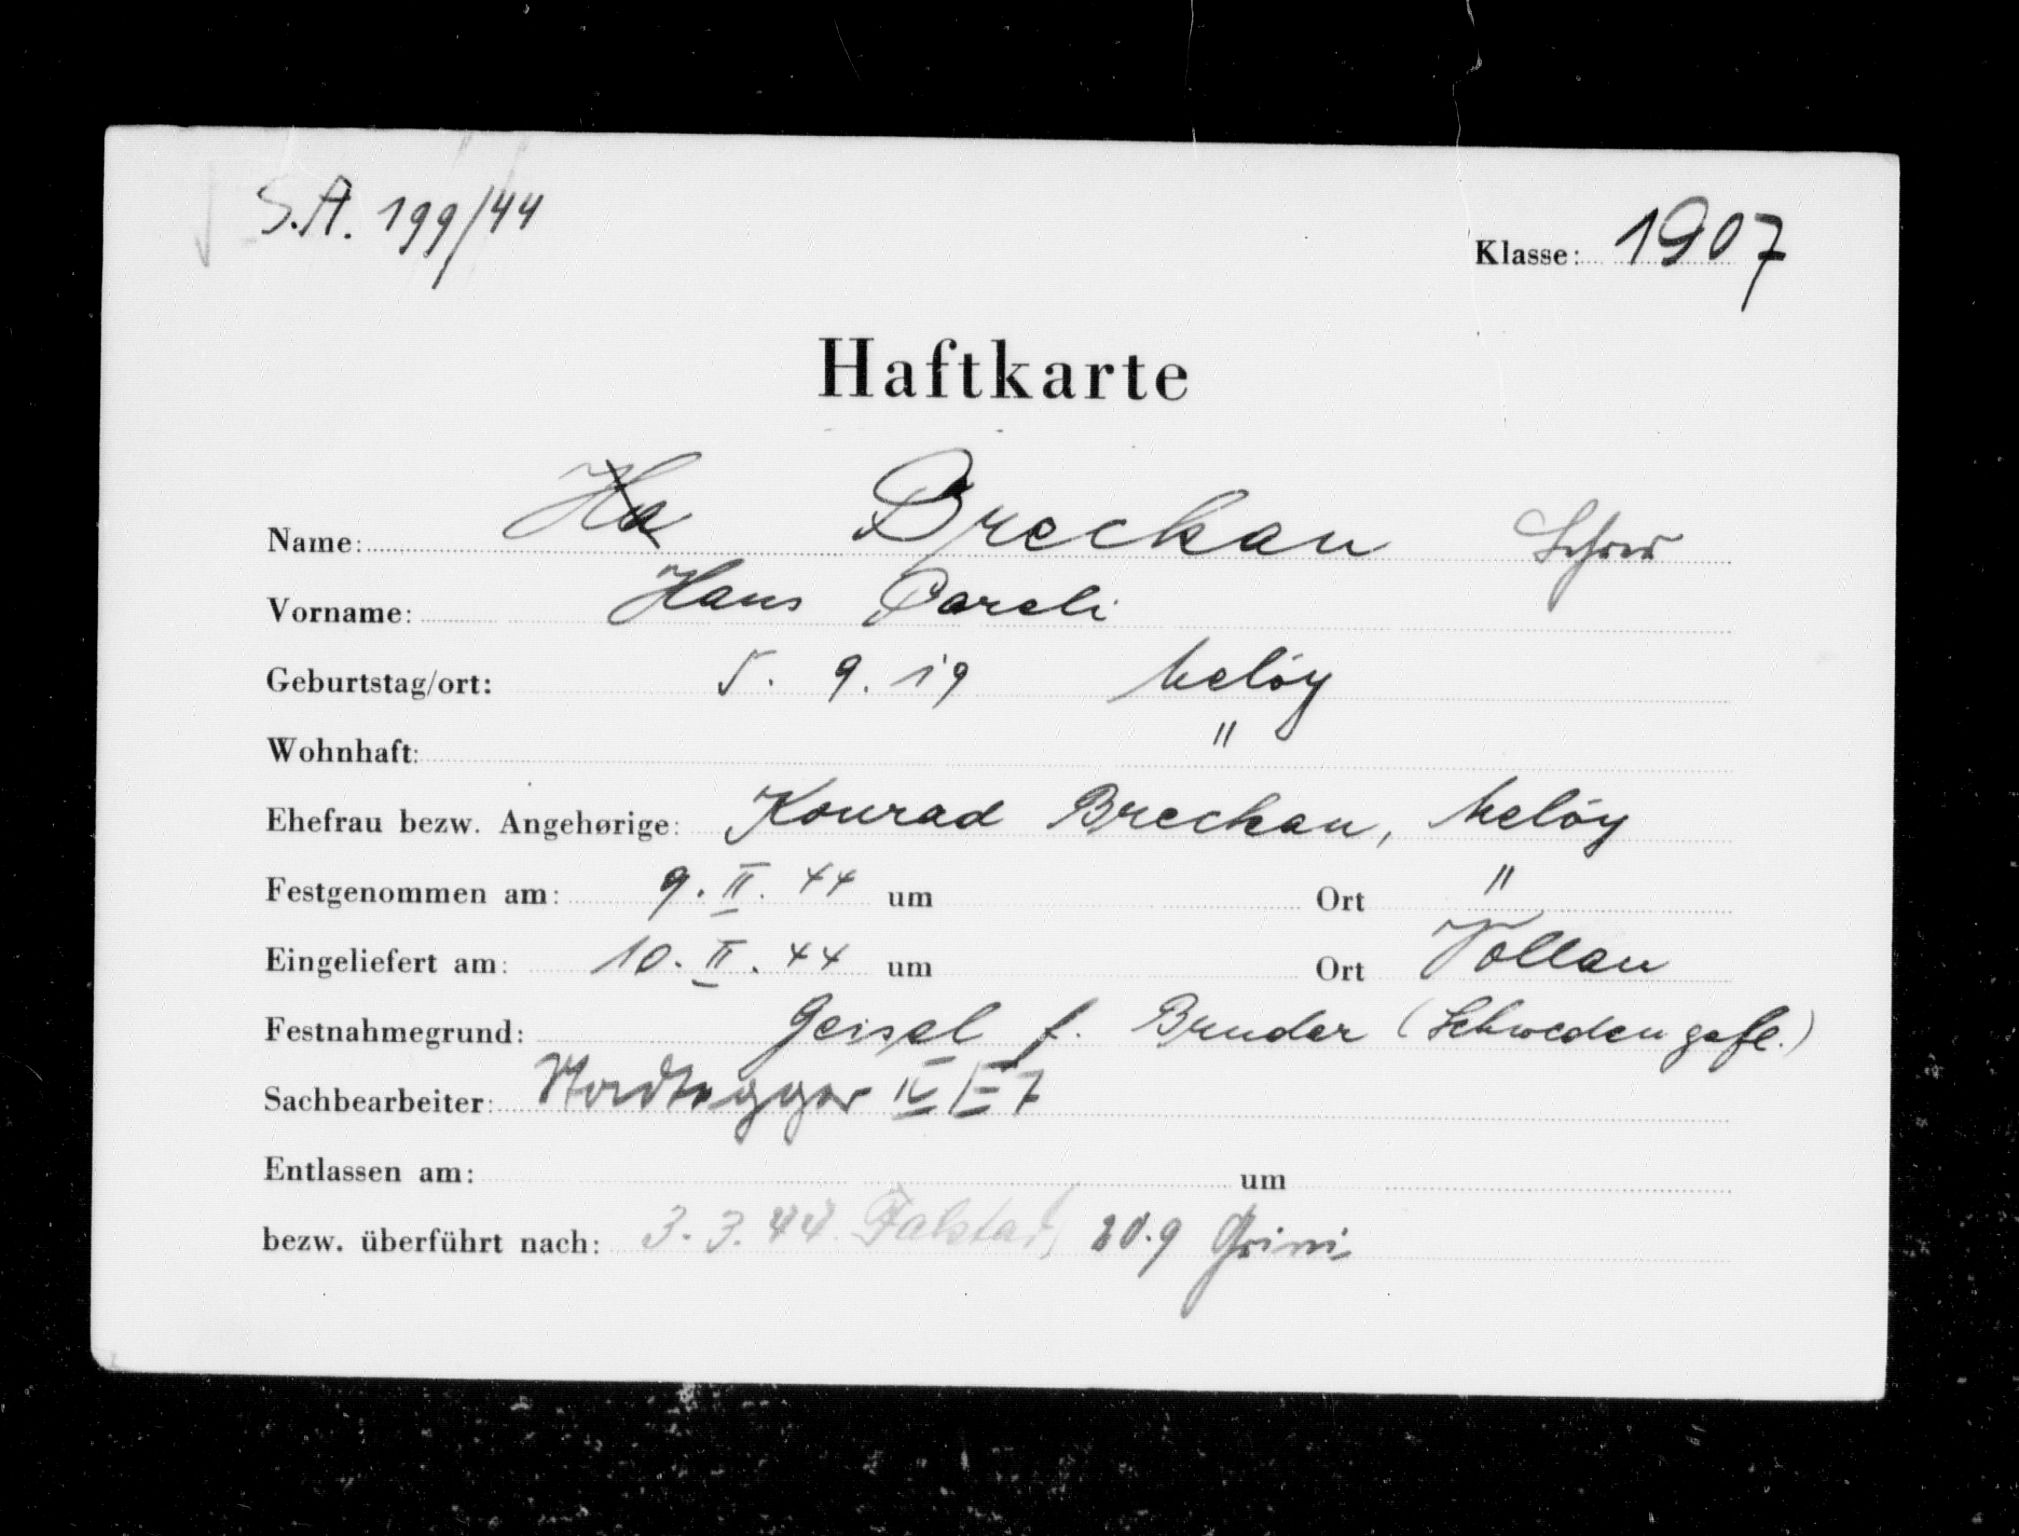 S.A. 199/44
Klasse: 1907
Haftkarte
Name: Ha Breckan Lehrer
Vorname: Hans Pareli
Geburtstag/ort: 5. 9. 19 Melöy
Wohnhaft: "
Ehefrau bezw. Angehørige: Konrad Breckan, Melöy
Festgenommen am: 9. II. 44 um Ort "
Eingeliefert am: 10. II. 44 um Ort Vollan
Festnahmegrund: Geisel f. Bruder (Schweden gefl.)
Sachbearbeiter: IV E 7
Entlassen am: um
bezw. überführt nach: 3. 3. 44 Falstad, 20.9 Grini